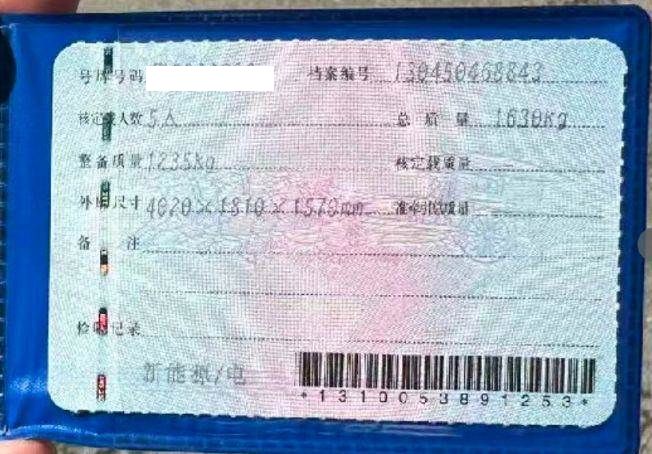 号牌号码 档案编号 130450468843
核定载人数 5人 总质量 1630kg
整备质量 1235kg 核定载质量
外廓尺寸 4020×1810×1570mm 准牵引总质量
备注
检验记录
新能源/电
*1310053891253*